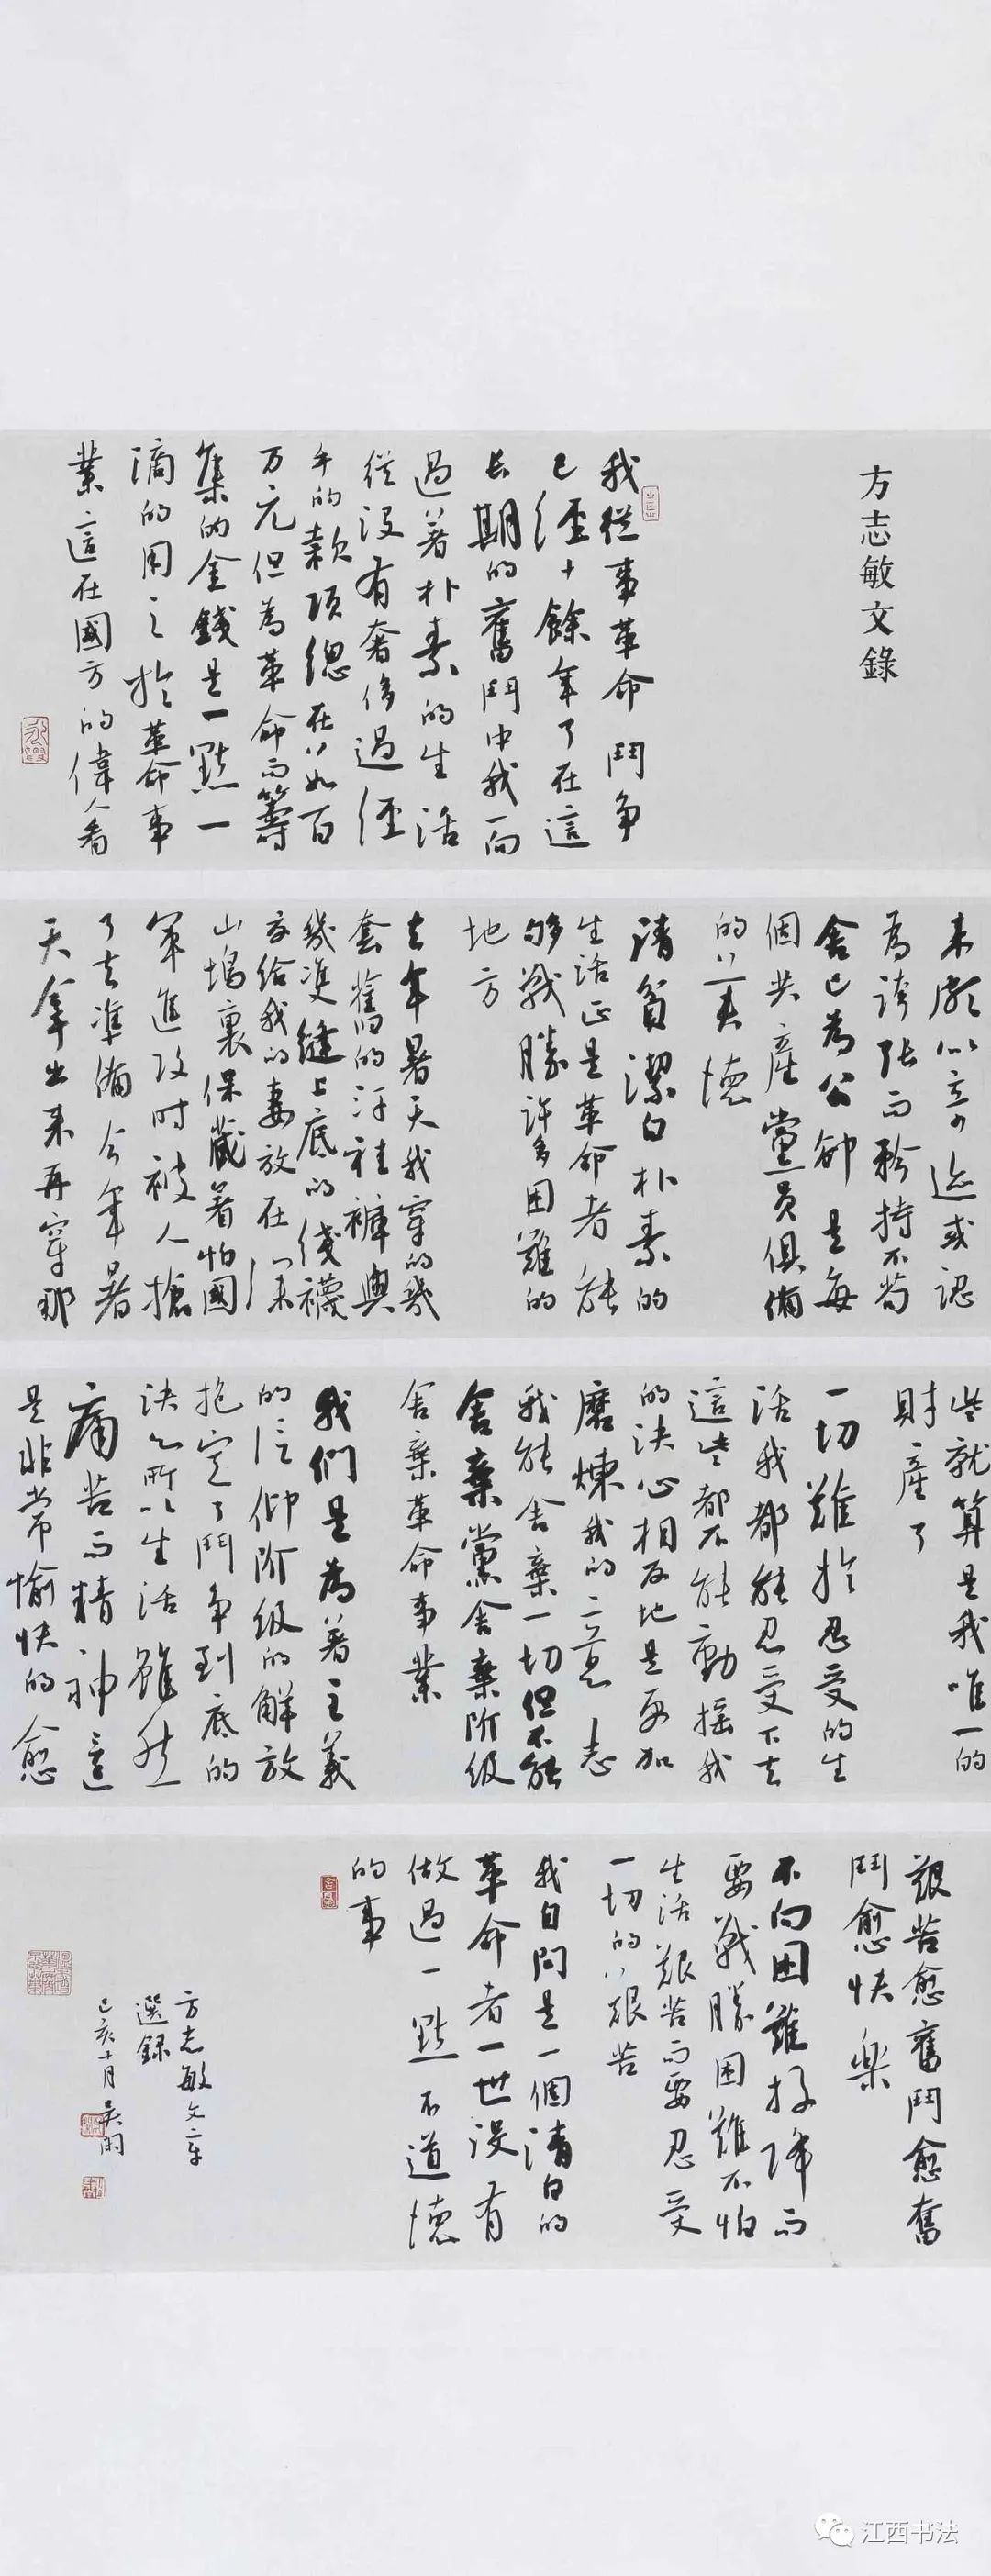 方志敏文錄
我從事革命鬥争
已經十餘年了在這
長期的奮鬥中我一向
過著朴素的生活
從没有奢侈過經
手的款項總在以如百
万元但為革命而籌
集的金錢是一點一
滴的用之於革命事
業這在國方的偉人看
来頗似奇迹或認
為誇張而矜持不苟
舍己為公却是每
個共產黨員俱備
的美德
清貧潔白朴素的
生活正是革命者能
够戰勝許多困難的
地方
去年暑天我穿的幾
套舊的汗褂褲與
幾雙縫上底的綫襪
交給我的妻放在深
山塢裏保藏着怕國
軍進攻时被人搶
了去準備今年暑
天拿出来再穿那
些就算是我唯一的
財產了
一切難於忍受的生
活我都能忍受下去
這些都不能動摇我
的决心相反地是更加
磨煉我的意志
我能舍棄一切但不能
舍棄黨舍棄阶级
舍棄革命事業
我們是為著主義
的信仰阶级的解放
抱定了鬥争到底的
决心所以生活雖然
痛苦而精神這
是非常愉快的愈
艱苦愈奮鬥愈奮
鬥愈快樂
不向困難投降而
要戰勝困難不怕
生活艱苦而要忍受
一切的艱苦
我自問是一個清白的
革命者一世没有
做過一點不道德
的事
方志敏文章
選録
己亥十月吴闲
江西书法